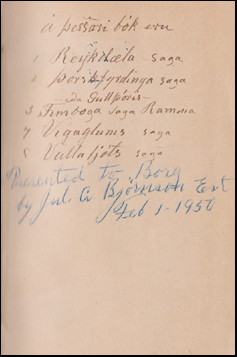 á þessari bók eru
1 Reykdæla saga
2 Þorskfyrdinga saga
eða Gullþóris
3 Finnboga saga Ramma
4 Vigaglums saga
5 Vallaljóts saga
Presented to Borg
by Jul. A Björnson Est
Feb 1 - 1950